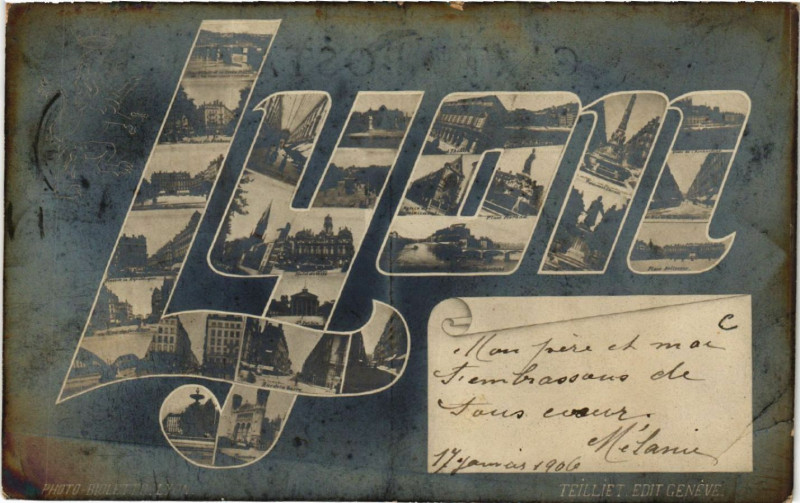 Lyon
C
Mon père et moi
t'embrassons de
tous coeur.
Mélanie
17 janvier 1906
TEILLIET. EDIT GENÈVE.